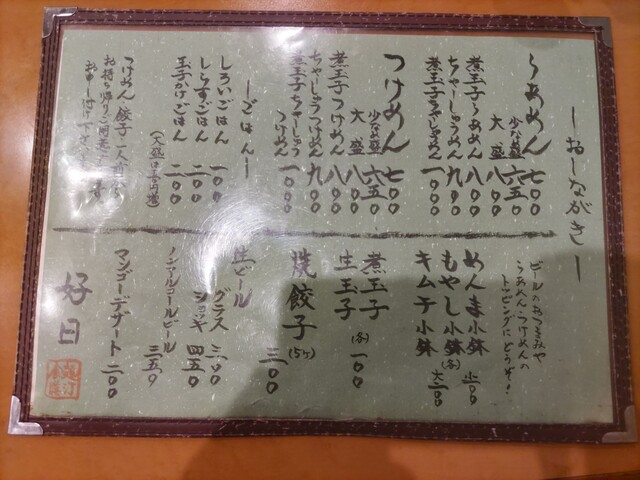 ーおしながきー
らあめん 七〇〇
少なめ 六五〇
大盛 八〇〇
煮玉子らあめん 八〇〇
ちゃーしゅうめん 九〇〇
煮玉子ちゃーしゅうめん 一〇〇〇
つけめん 七〇〇
少なめ 六五〇
大盛 八〇〇
煮玉子つけめん 八〇〇
ちゃーしゅうつけめん 九〇〇
煮玉子ちゃーしゅう
つけめん 一〇〇〇
ーごはんー
しろいごはん 一〇〇
しらすごはん 二〇〇
玉子かけごはん 二〇〇
つけめん 餃子 一人前
お持ち帰りご用意
お申し付け下さい
ビールのおつまみや
らあめん・つけめんの
トッピングにどうぞ!
めんま小鉢
もやし小鉢(各)
キムチ小鉢
煮玉子
生玉子 (各)一〇〇
焼餃子(5ケ) 三〇〇
生ビール
グラス 三〇〇
ジョッキ 四五〇
ノンアルコールビール 三五〇
マンゴーデザート 二〇〇
好日